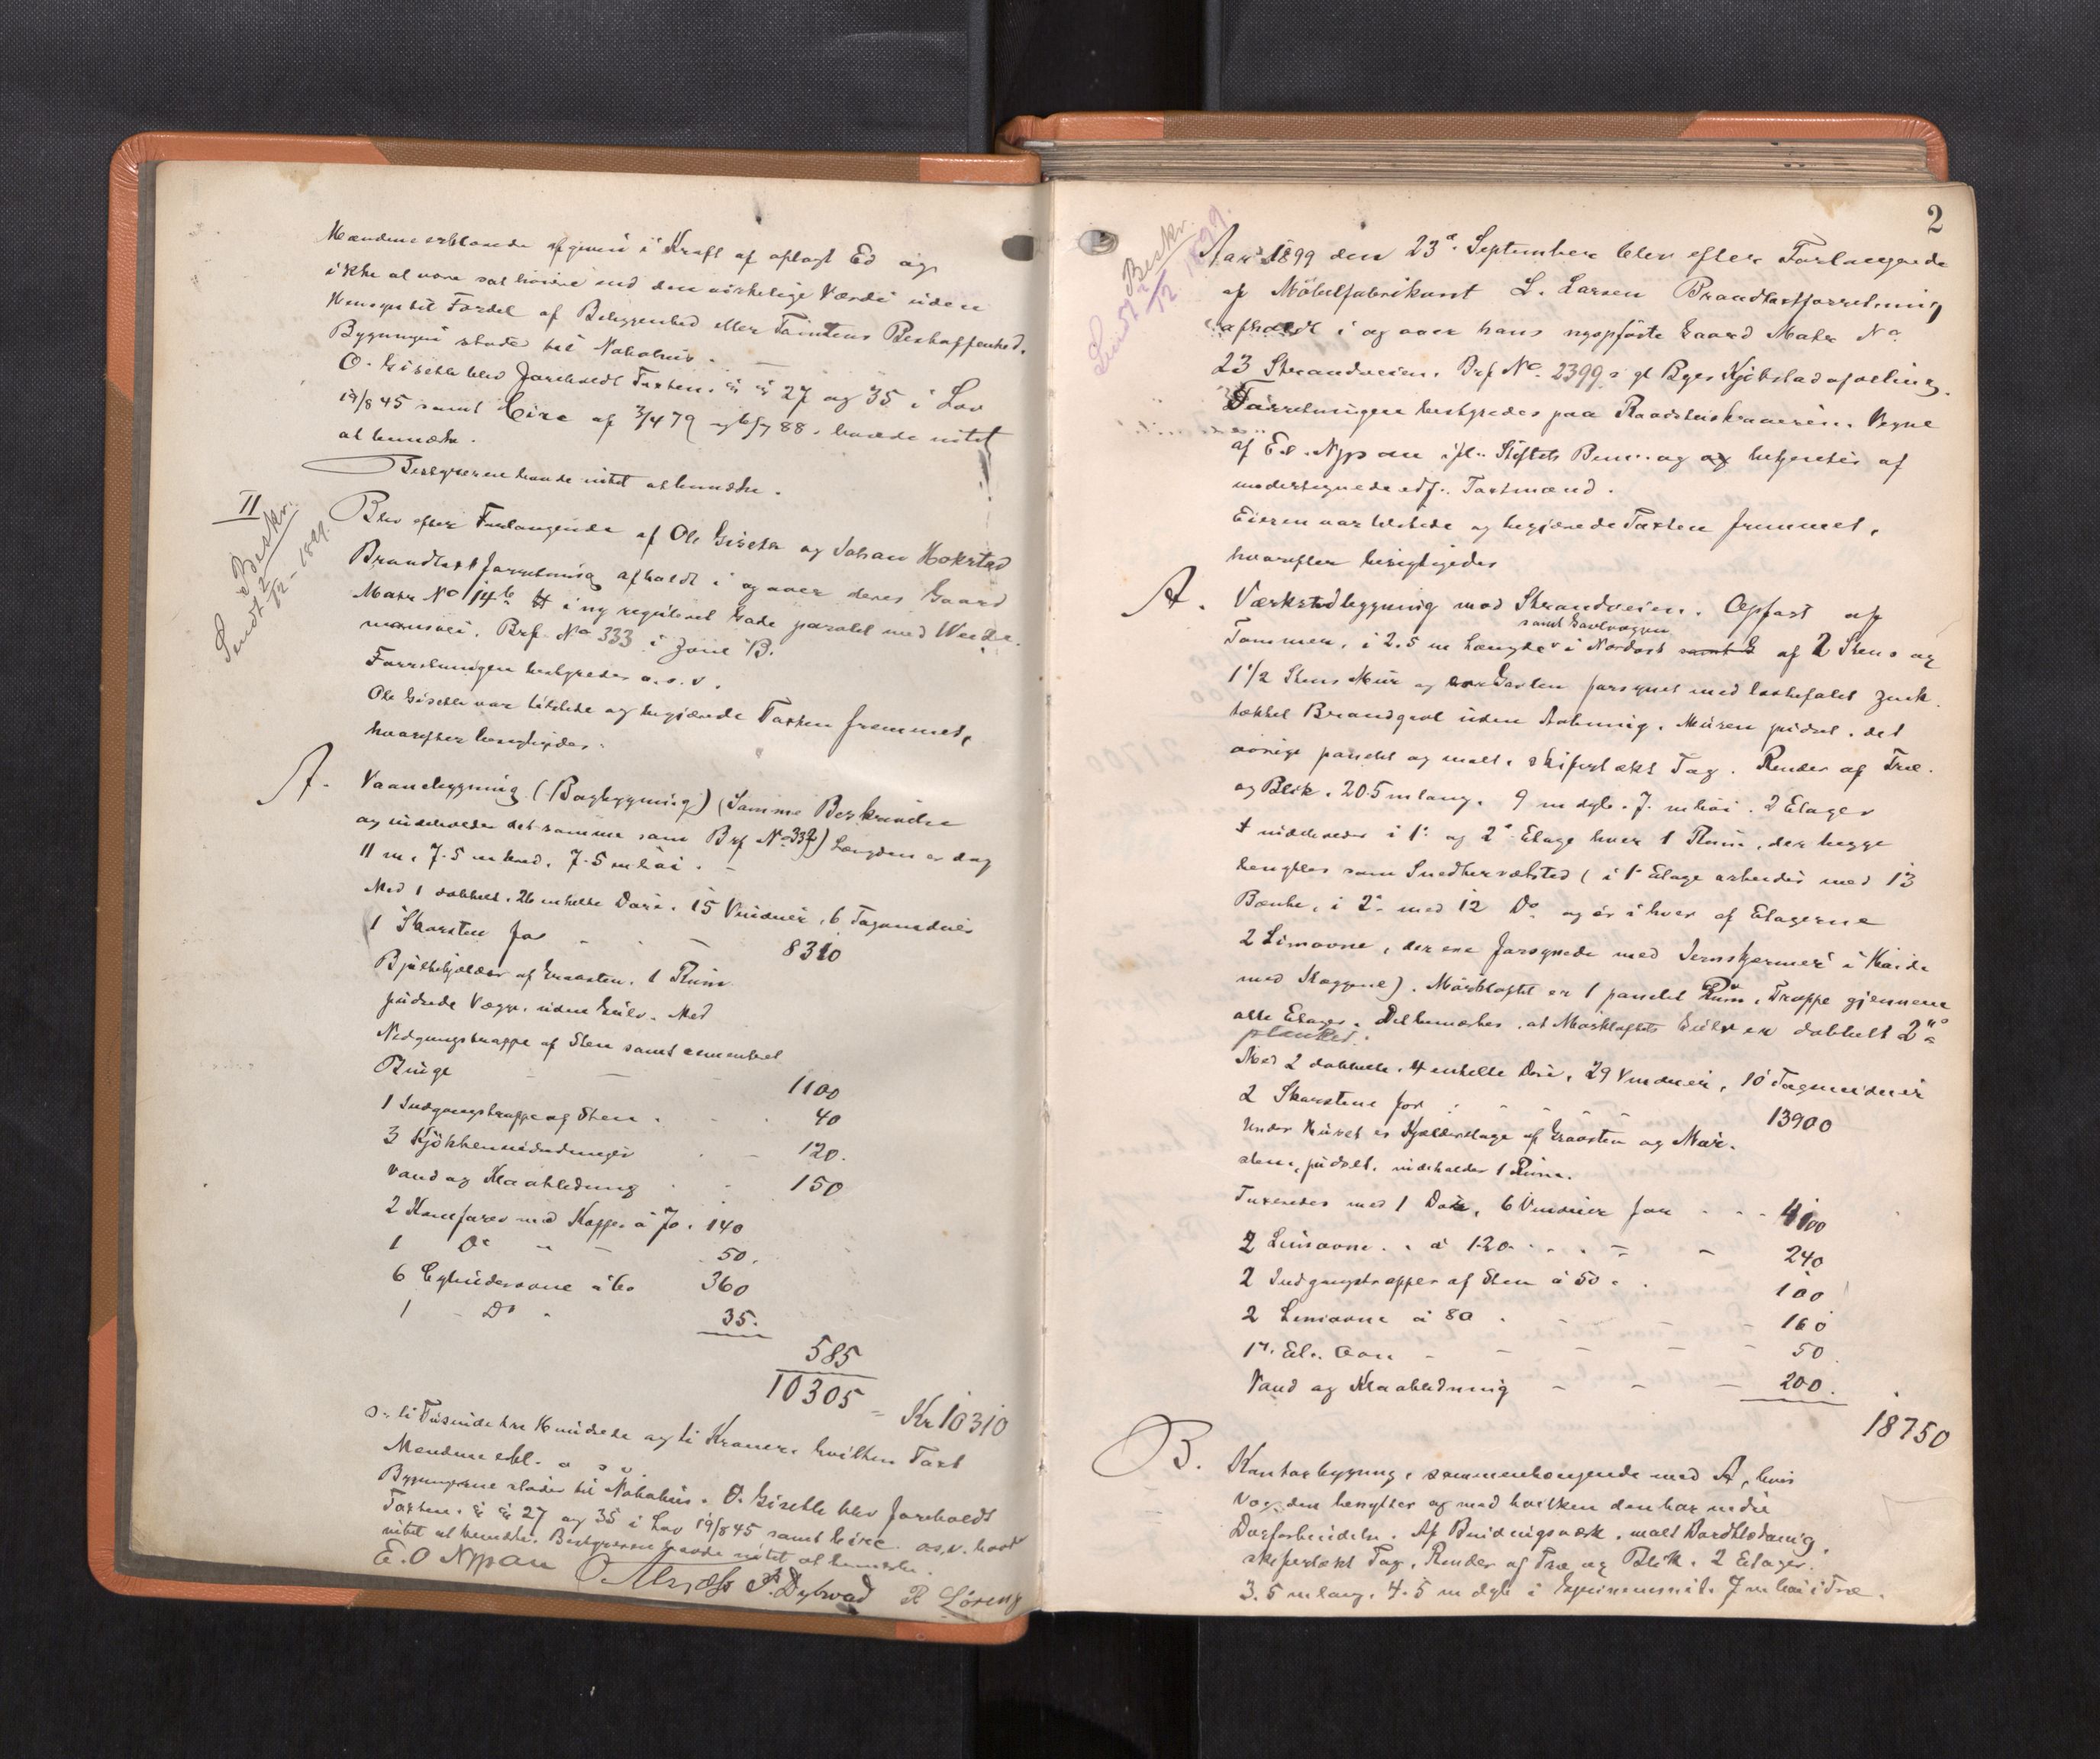 Mændene erklærede afgiven i Kraft af aflagt Ed og
ikke at være sat høiere end den virkelige Værdi uden
Hensyn til Fordel af Beliggenhed eller Tomtens Beskaffenhed.
Bygningen stode til Nabohus.
O. Gisetle blev foreholdt Taxten. §§ 27 og 35 i Lov
19/8 45 samt Circ af 3/4 79 og 6/7 88. havde intet
at bemærke.
Bestyreren havde intet at bemærke.
II
Beskr.
Sendt 2/12 - 1899.
Blev efter Forlangende af Ole Gisetle og Johan Hokstad
Brandtaxtforretning afholdt i og over deres Gaard
Matr No 14b i ny reguleret Gade paralel med Weide-
mansvei. Brf. No 333 i Zone B.
Forretningen bestyredes o.s.v.
Ole Gisetle var tilstede og begjærede Taxten fremmet,
hvorefter besigtigedes:
A.
Vaanebygning (Bagbygning) (Samme Beskrivelse
og indeholder det samme som Brf No 332) Længden er dog
11 m, 7.5 m bred. 7.5 m høi.
Med 1 dobbelt. 26 enkelte Döre. 15 Vinduer, 6 Tagvinduer
1 Skorsten for 8310
Bjælkekjælder af Graasten. 1 Rum
pudsede Vægge, uden Gulv. Med
Nedgangstrappe af Sten samt cementeret
Binge 1100
1 Indgangstrappe af Sten 40
3 Kjökkenindretninger 120.
Vand og Kloakledning 150
2 Komfurer med Kapper à 70. 140
1 Do 50.
6 Cylinderovne à 60 360
1 Do 35.
585
10305 = Kr 10310
s: ti Tusinde tre Hundrede og ti Kroner. hvilken Taxt
Mændene erkl. o s v.
Bygningerne stöder til Nabohus. O. Gisetle blev foreholdt
Taxten. §§ 27 og 35 i Lov 19/8 45 samt Circ. o.s.v. havde
intet at bemærke. Bestyreren havde intet at bemærke.
E. O Nypan P. Dybwad R Löseng
2
Beskr.
Sendt 2/12 1899.
Aar 1899 den 23d September blev efter Forlangende
af Möbelfabrikant L. Larsen Brandtaxtforretning
afholdt i og over hans nyopförte Gaard Matr No
23 Strandveien. Brf No. 2399 a gl Byes Kjöbstadafdeling.
Forretningen bestyredes paa Raadstuskriverens Vegne
af E. O. Nypan ifl. Stiftets Bem. og og betjentes af
undertegnede edf. Taxtmænd.
Eieren var tilstede og begjærede Taxten fremmet,
hvorefter besigtigedes
A.
Værkstedbygning mod Strandveien. Opført af
samt Gavlvæggen
Tømmer, i 2.5 m Længde i Nordost af 2 Stens og
1 1/2 Stens Mur og over Gavlen forsynet med lovbefalet Zink-
tækket Brandgavl uden Aabning. Muren pudset. det
øvrige panelet og malt. skifertækt Tag. Render af Træ
og Blik. 20.5 m lang. 9 m dyb. 7. m høi. 2 Etager
Indeholder i 1e og 2den Etage hver 1 Rum, der begge
benyttes som Snedkerværksted (i 1e Etage arbeides med 13
Bænke, i 2den med 12 Do. og er i hver af Etagerne
2 Limovne, der ere forsynede med Jernskjermer i Høide
med Kappene). Mörkloftet er 1 panelet Rum. Trappe gjennem
alle Etager. Det bemærkes, at Mörkloftets Gulv er dobbelt 2"
planket.
Med 2 dobbelte. 4 enkelte Döre, 29 Vinduer, 10 Tagvinduer
2 Skorstene for 13900
Under Huset er Kjælderetage af Graasten og Mur-
sten, pudset. indeholder 1 Rum.
Taxeredes med 1 Dör, 6 Vinduer for 4100
2 Limovne à 120 240
2 Indgangstrapper af Sten à 50. 100
2 Limovne à 80 160
1 Et. Ovn 50
Vand og Kloakledning 200.
18750
B.
Kontorbygning, sammenhængende med A, hvis
Væg den benytter og med hvilken den har indre
Dörforbindelse. Af Bindingsværk. malt Bordklædning,
skifertækt Tag, Render af Træ og Blik. 2 Etager.
3.5 m lang, 4.5 m dyb i Gjennemsnit. 7 m høi i Træ.